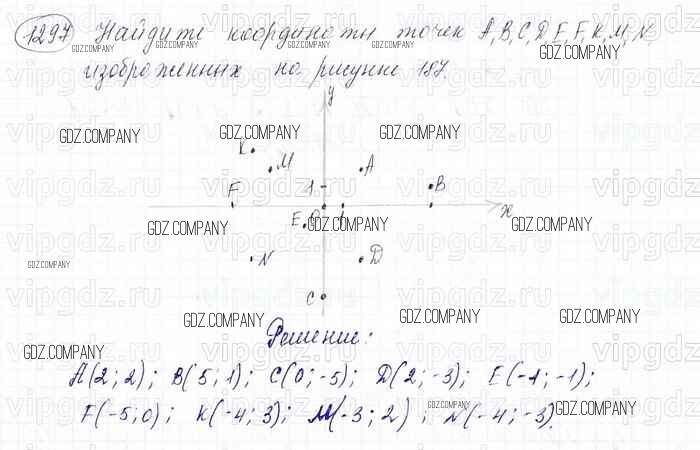 1297 Найдите координаты точек A, B, C, D, E, F, K, M, N,
GDZ.COMPANY GDZ.COMPANY GDZ.COMPANY GDZ.COMPANY
изображенных на рисунке 187.
y
GDZ.COMPANY GDZ.COMPANY GDZ.COMPANY
K M A
F 1 B
E 0 1 x
GDZ.COMPANY GDZ.COMPANY GDZ.COMPANY
N D
GDZ.COMPANY
C
GDZ.COMPANY GDZ.COMPANY GDZ.COMPANY
Решение:
GDZ.COMPANY
A(2; 2); B(5; 1); C(0; -5); D(2; -3); E(-1; -1);
F(-5; 0); K(-4; 3); M(-3; 2); N(-4; -3).
GDZ.COMPANY GDZ.COMPANY